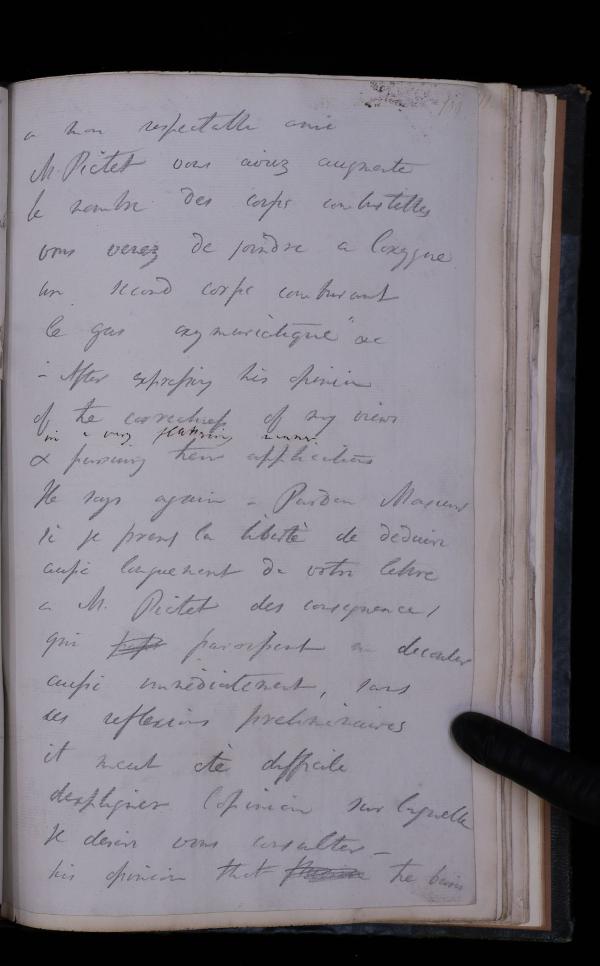 a mon respectable ami
M. Pictet vous avez augmenté
le nombre des corps combustibles
vous venez de joindre a l'oxygene
un second corps comburant
le gas oxymuriatique" &c
- After expressing his opinion
of the correctness of my views
in a very flattering manner
& pursuing their application
He says again - Pardon Monsieur
si je prens la liberté de deduire
aussi longuement de votre lettre
a M. Pictet des consequences
qui paroissent en decouler
aussi immediatement, sans
ces reflexions preliminaires
il m'eut été difficile
d'expliquer l'opinion sur laquelle
je desire vous consulter -
his opinion that the basis